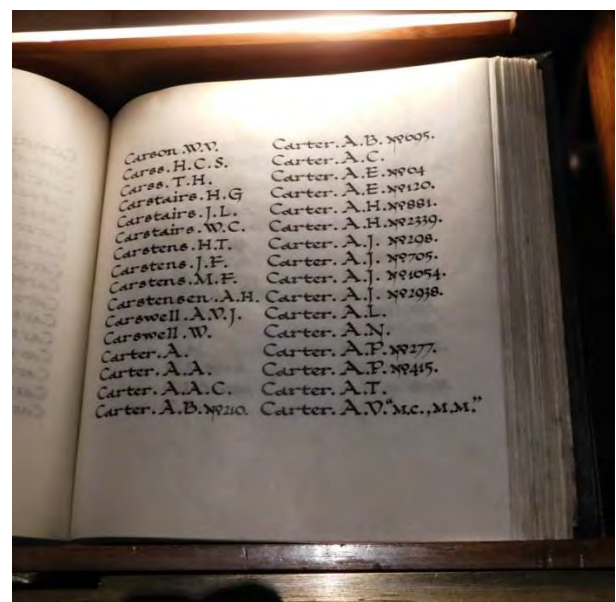 Carson. W.V.
Carss. H.C.S.
Carss. T.H.
Carstairs. H.G
Carstairs. J.L.
Carstairs. W.C.
Carstens. H.T.
Carstens. J.F.
Carstens. M.F.
Carstensen. A.H.
Carswell. A.V.J.
Carswell. W.
Carter. A.
Carter. A.A.
Carter. A.A.C.
Carter. A.B. №210.
Carter. A.B. №695.
Carter. A.C.
Carter. A.E. №64
Carter. A.E. №120.
Carter. A.H. №881.
Carter. A.H. №2339.
Carter. A.J. №298.
Carter. A.J. №705.
Carter. A.J. №1054.
Carter. A.J. №2938.
Carter. A.L.
Carter. A.N.
Carter. A.P. №277.
Carter. A.P. №415.
Carter. A.T.
Carter. A.V. "M.C., M.M."